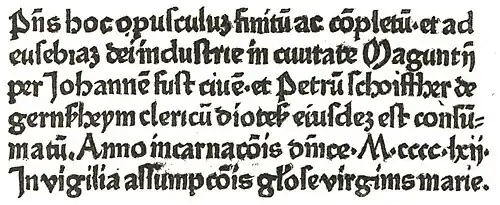 Pn̄s hoc opusculuz finitū ac cōpletū. et ad
eusebiaz dei industrie in ciuitate Maguntij
per Johannē fust ciuē. et Petrū schoiffher de
gernſheym clericū diotes eiusdez est consū-
matū. Anno incarnacōis dn̄ice. M. cccc. lxij.
In vigilia assumpcōis gl'ose virginis marie.